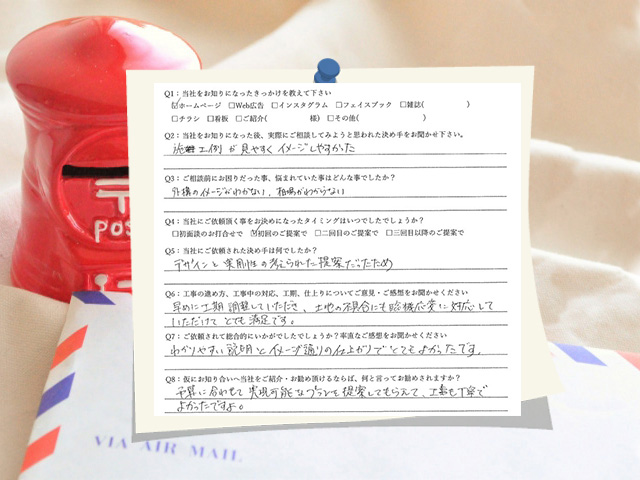 Q1：当社をお知りになったきっかけを教えて下さい
☑ホームページ □Web広告 □インスタグラム □フェイスブック □雑誌( )
□チラシ □看板 □ご紹介( 様) □その他( )
Q2：当社をお知りになった後、実際にご相談してみようと思われた決め手をお聞かせ下さい。
施工例が見やすくイメージしやすかった
Q3：ご相談前にお困りだった事、悩まれていた事はどんな事でしたか？
外構のイメージがわかない、相場がわからない
Q4：当社にご依頼頂く事をお決めになったタイミングはいつでしたでしょうか？
□初面談のお打合せで ☑初回のご提案で □二回目のご提案で □三回目以降のご提案で
Q5：当社にご依頼された決め手は何でしたか？
デザインと実用性の考えられた提案だったため
Q6：工事の進め方、工事中の対応、工期、仕上りについてご意見・ご感想をお聞かせください
早めに工期調整していただき、土地の不具合にも臨機応変に対応して
いただけてとても満足です。
Q7：ご依頼されて総合的にいかがでしたでしょうか？率直なご感想をお聞かせください
わかりやすい説明とイメージ通りの仕上がりでとてもよかったです。
Q8：仮にお知り合いへ当社をご紹介・お勧め頂けるならば、何と言ってお勧めされますか？
予算に合わせて実現可能なプランを提案してもらえて、工事も丁寧で
よかったですよ。
POS
VIA AIR MAIL